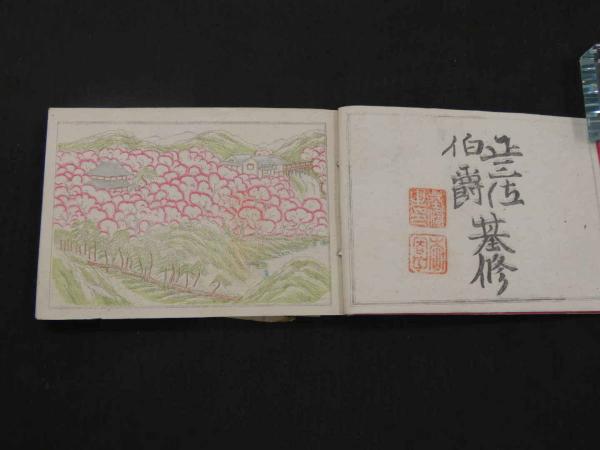 正三位
伯爵
基修